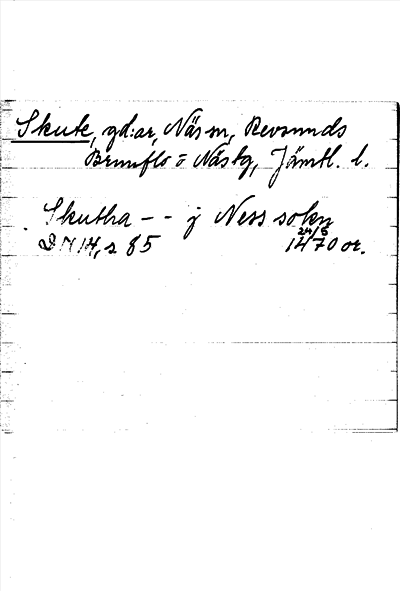 Skute, gd:ar, Näs sn, Revsunds
Brunflo o Näs tg, Jämtl. l.
Skutha - - j Ness sokn
DN 14, s 85 24/6 1470 or.